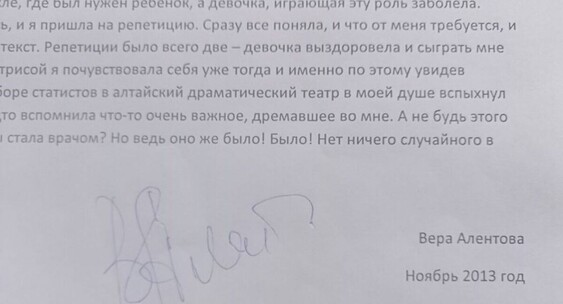 где был нужен ребенок, а девочка, играющая эту роль заболела.
и я пришла на репетицию. Сразу все поняла, и что от меня требуется, и
текст. Репетиции было всего две – девочка выздоровела и сыграть мне
я почувствовала себя уже тогда и именно по этому увидев
статистов в алтайский драматический театр в моей душе вспыхнул
вспомнила что-то очень важное, дремавшее во мне. А не будь этого
стала врачом? Но ведь оно же было! Было! Нет ничего случайного в
Вера Алентова
Ноябрь 2013 год